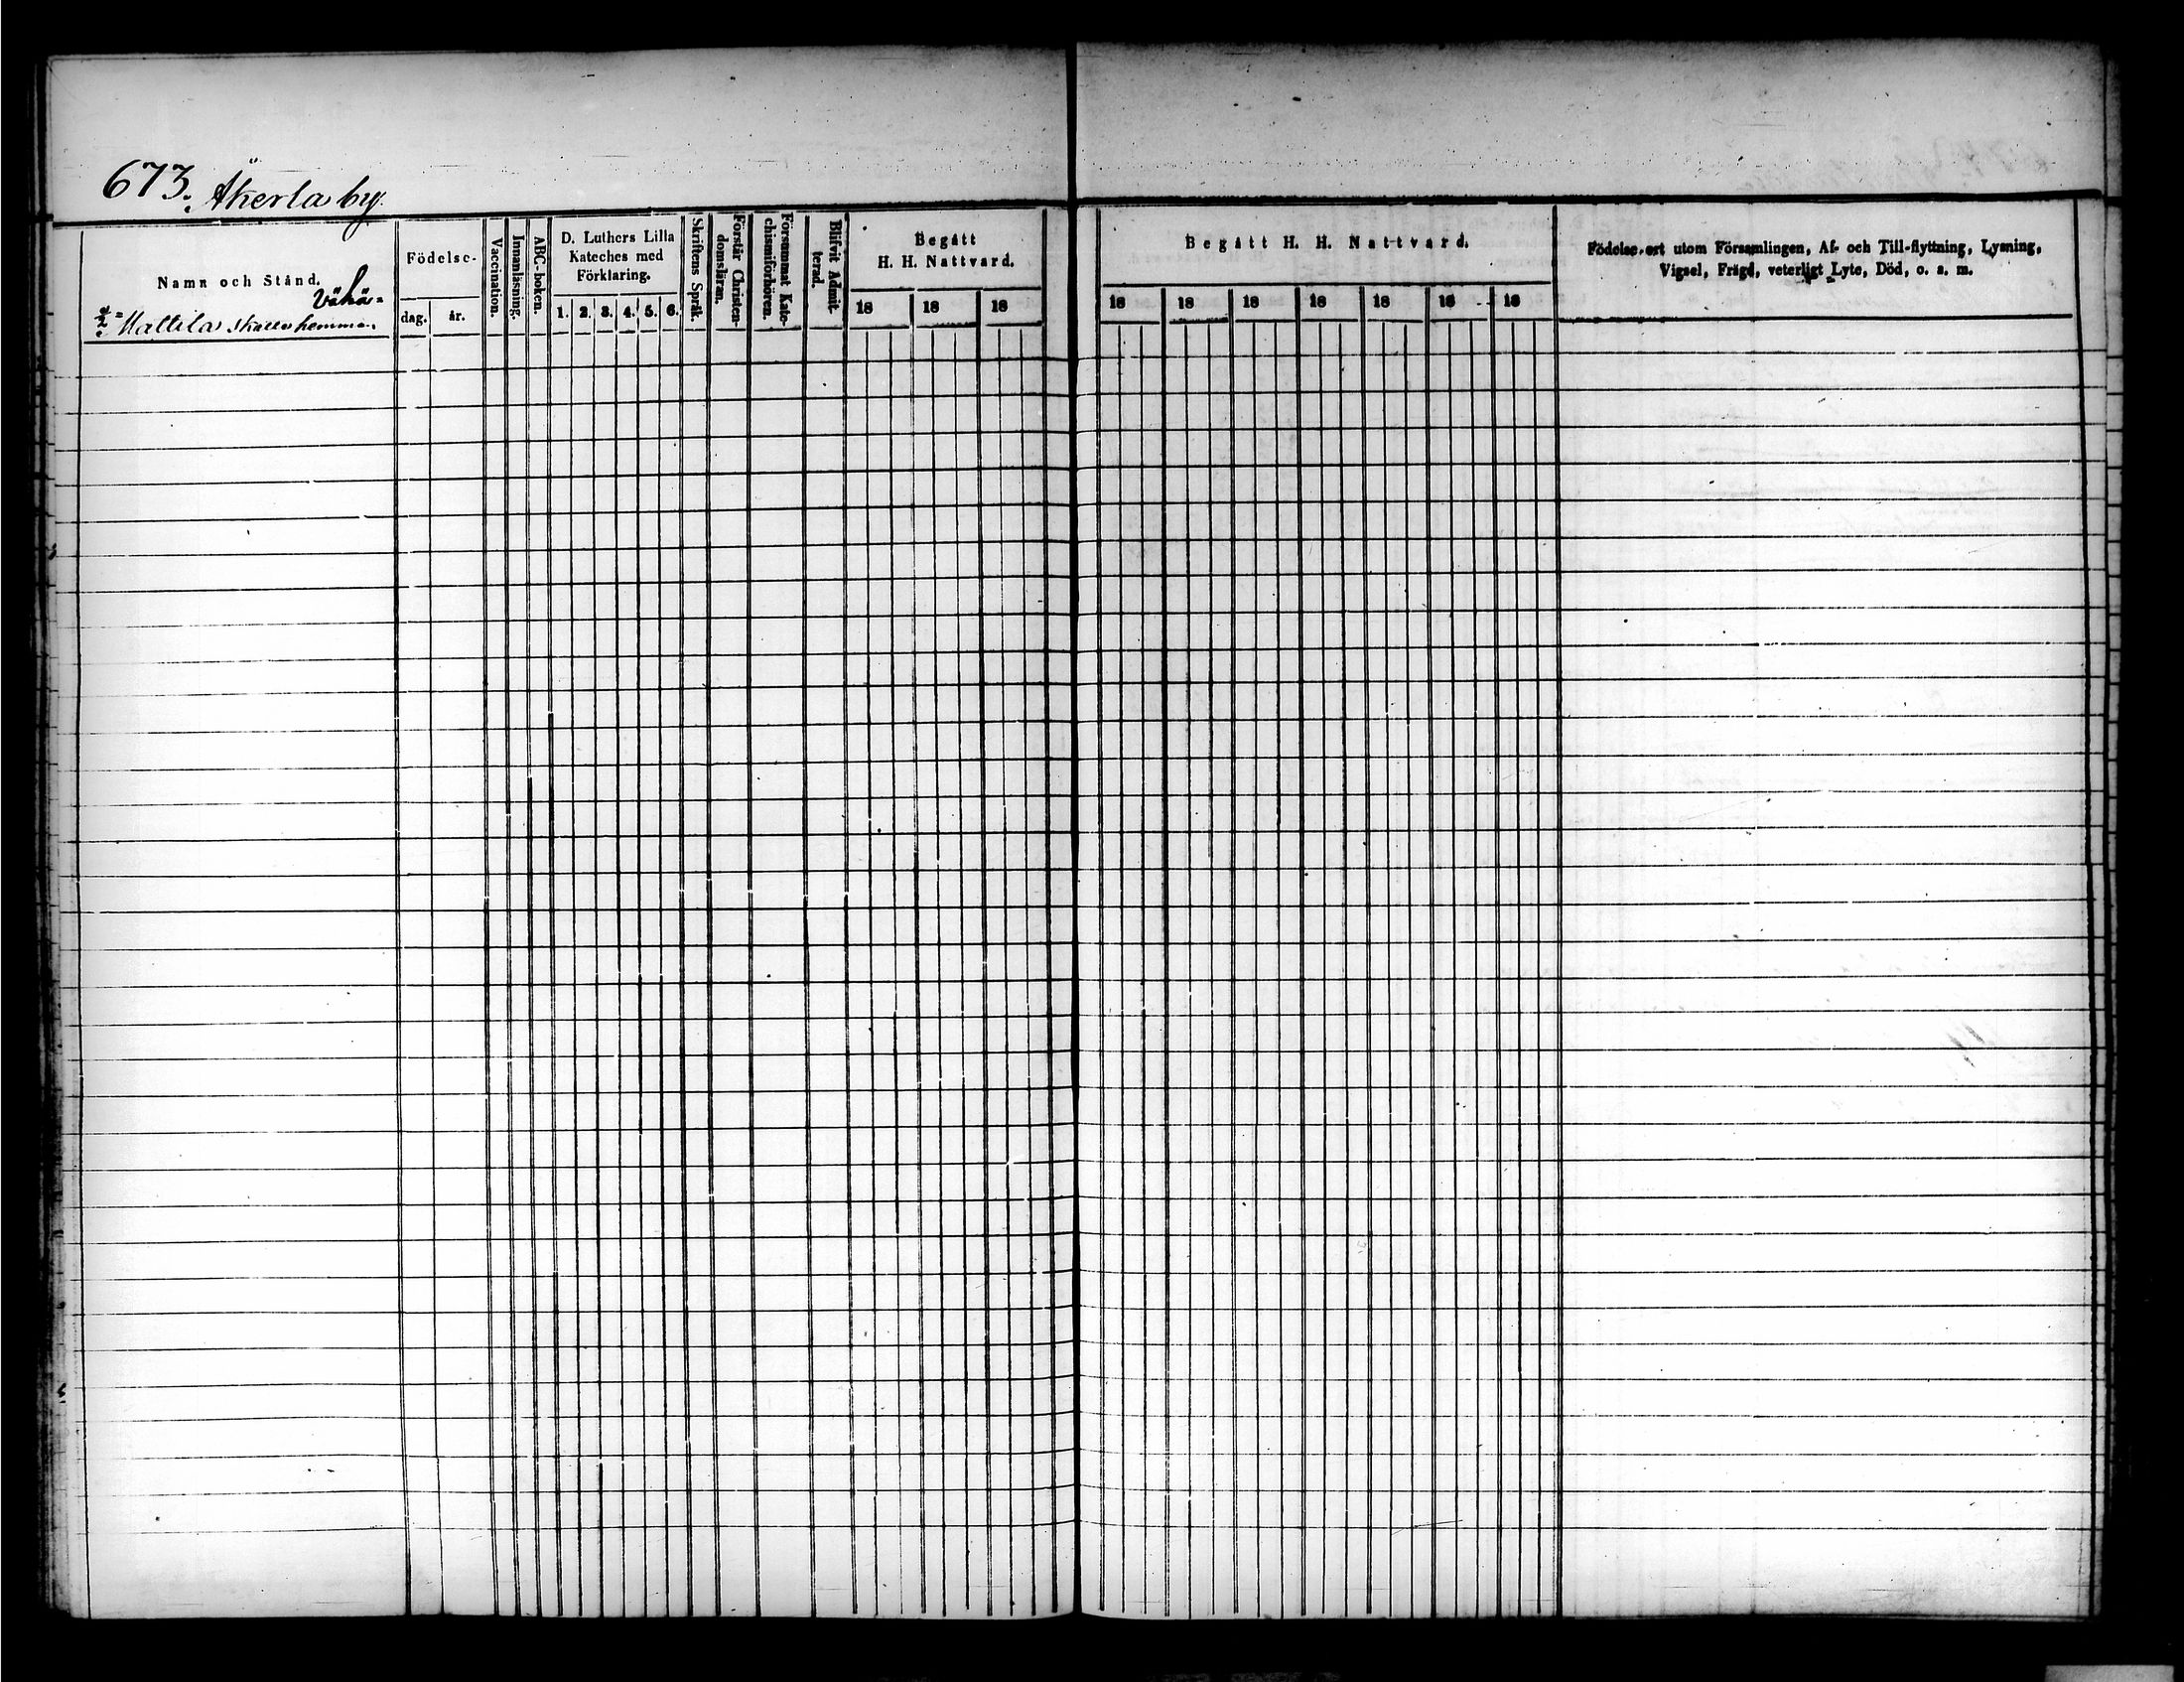 673. Åkerla by.
Namn och Stånd.
Vähä=
Mattila skatte hemman.
Födelse-
dag.
år.
Vaccination.
Innanläsning.
ABC-boken.
D. Luthers Lilla
Kateches med
Förklaring.
1. 2. 3. 4. 5. 6.
Skriftens Språk.
Förstår Christen-
domsläran.
Försummat Kate-
chismiförhören.
Blifvit Admit-
terad.
Begått
H. H. Nattvard.
18 18 18
Begått H. H. Nattvard.
18 18 18 18 18 18 18
Födelse-ort utom Församlingen, Af- och Till-flyttning, Lysning,
Vigsel, Frägd, veterligt Lyte, Död, o. s. m.